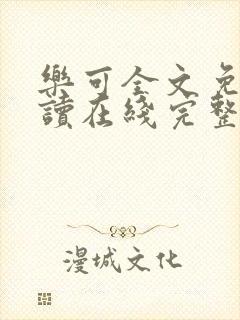 樂可全文免
讀在綫完整
漫城文化